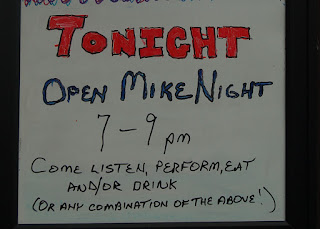 TONIGHT
OPEN MIKE NIGHT
7-9 pm
COME LISTEN, PERFORM, EAT
AND/OR DRINK
(OR ANY COMBINATION OF THE ABOVE!)